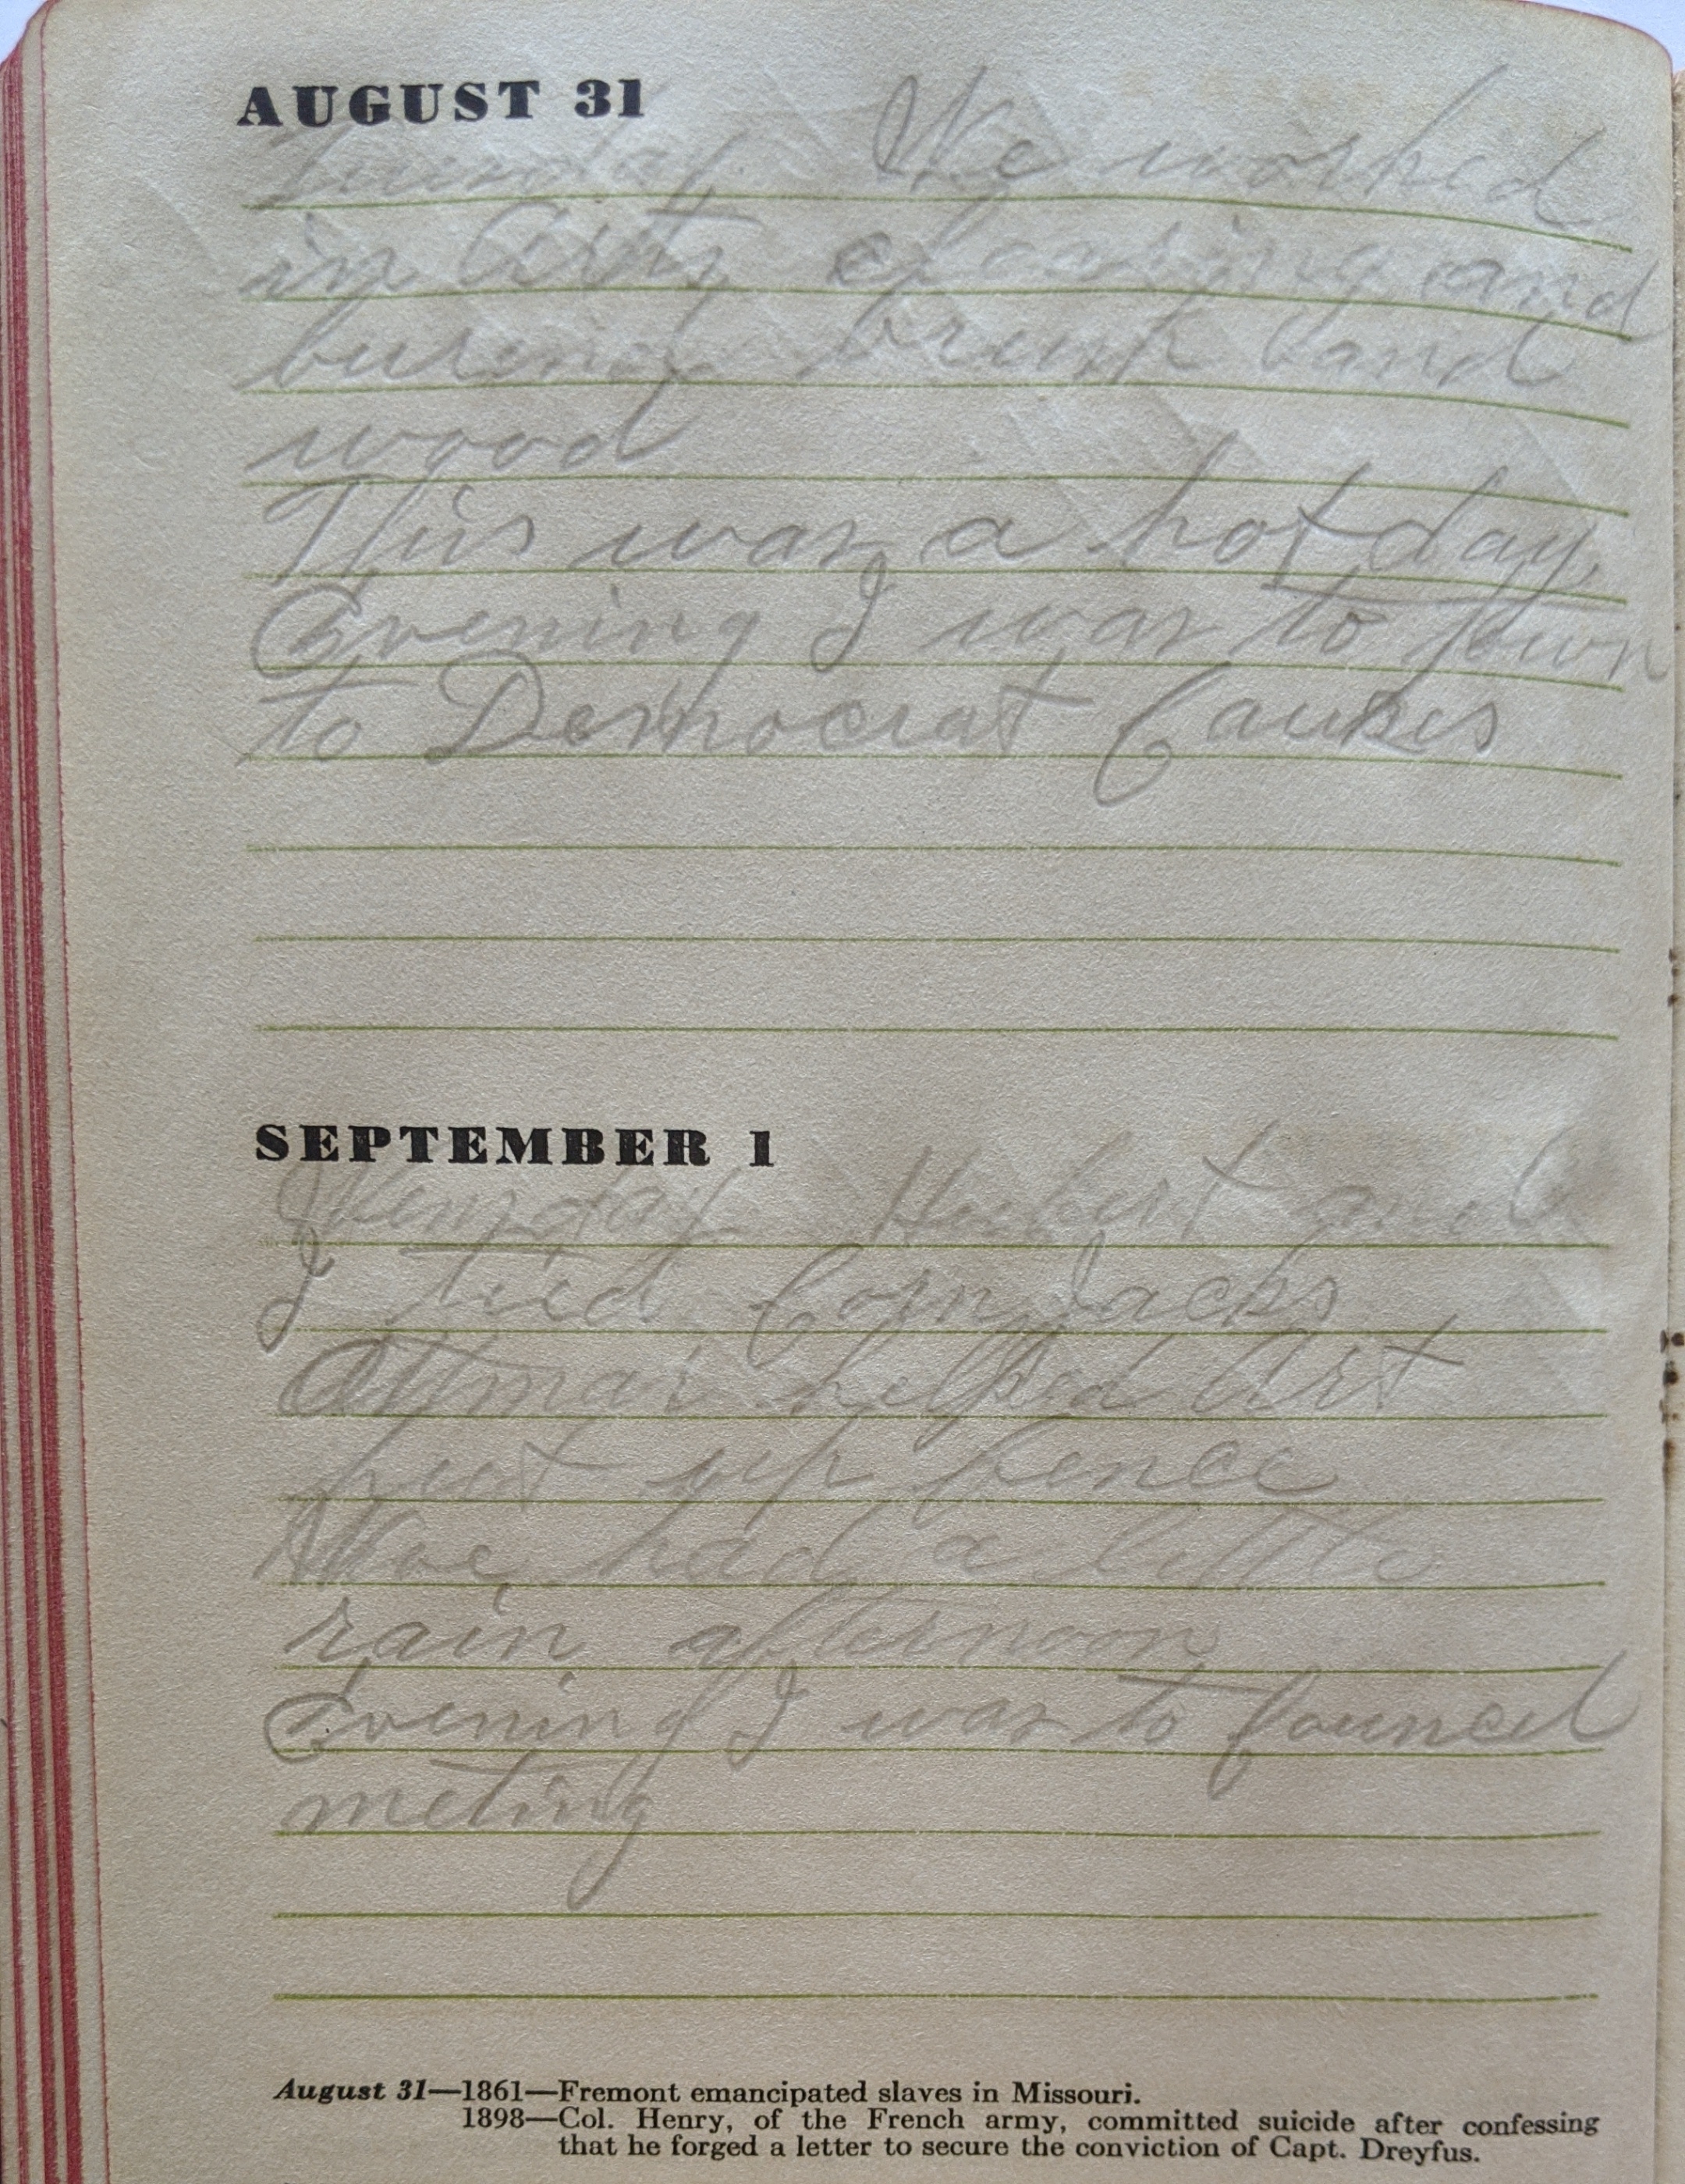 AUGUST 31
We worked
in Arts clearing and
burend brush and
wood
This was a hot day
Evening I was to town
to Democrat Caukes
SEPTEMBER 1
Hubert and
I tied Corn Jacks
Ottmar helped Art
put up fence
We had a little
rain afternoon
Evening I was to Councel
meting
August 31—1861—Fremont emancipated slaves in Missouri.
1898—Col. Henry, of the French army, committed suicide after confessing
that he forged a letter to secure the conviction of Capt. Dreyfus.